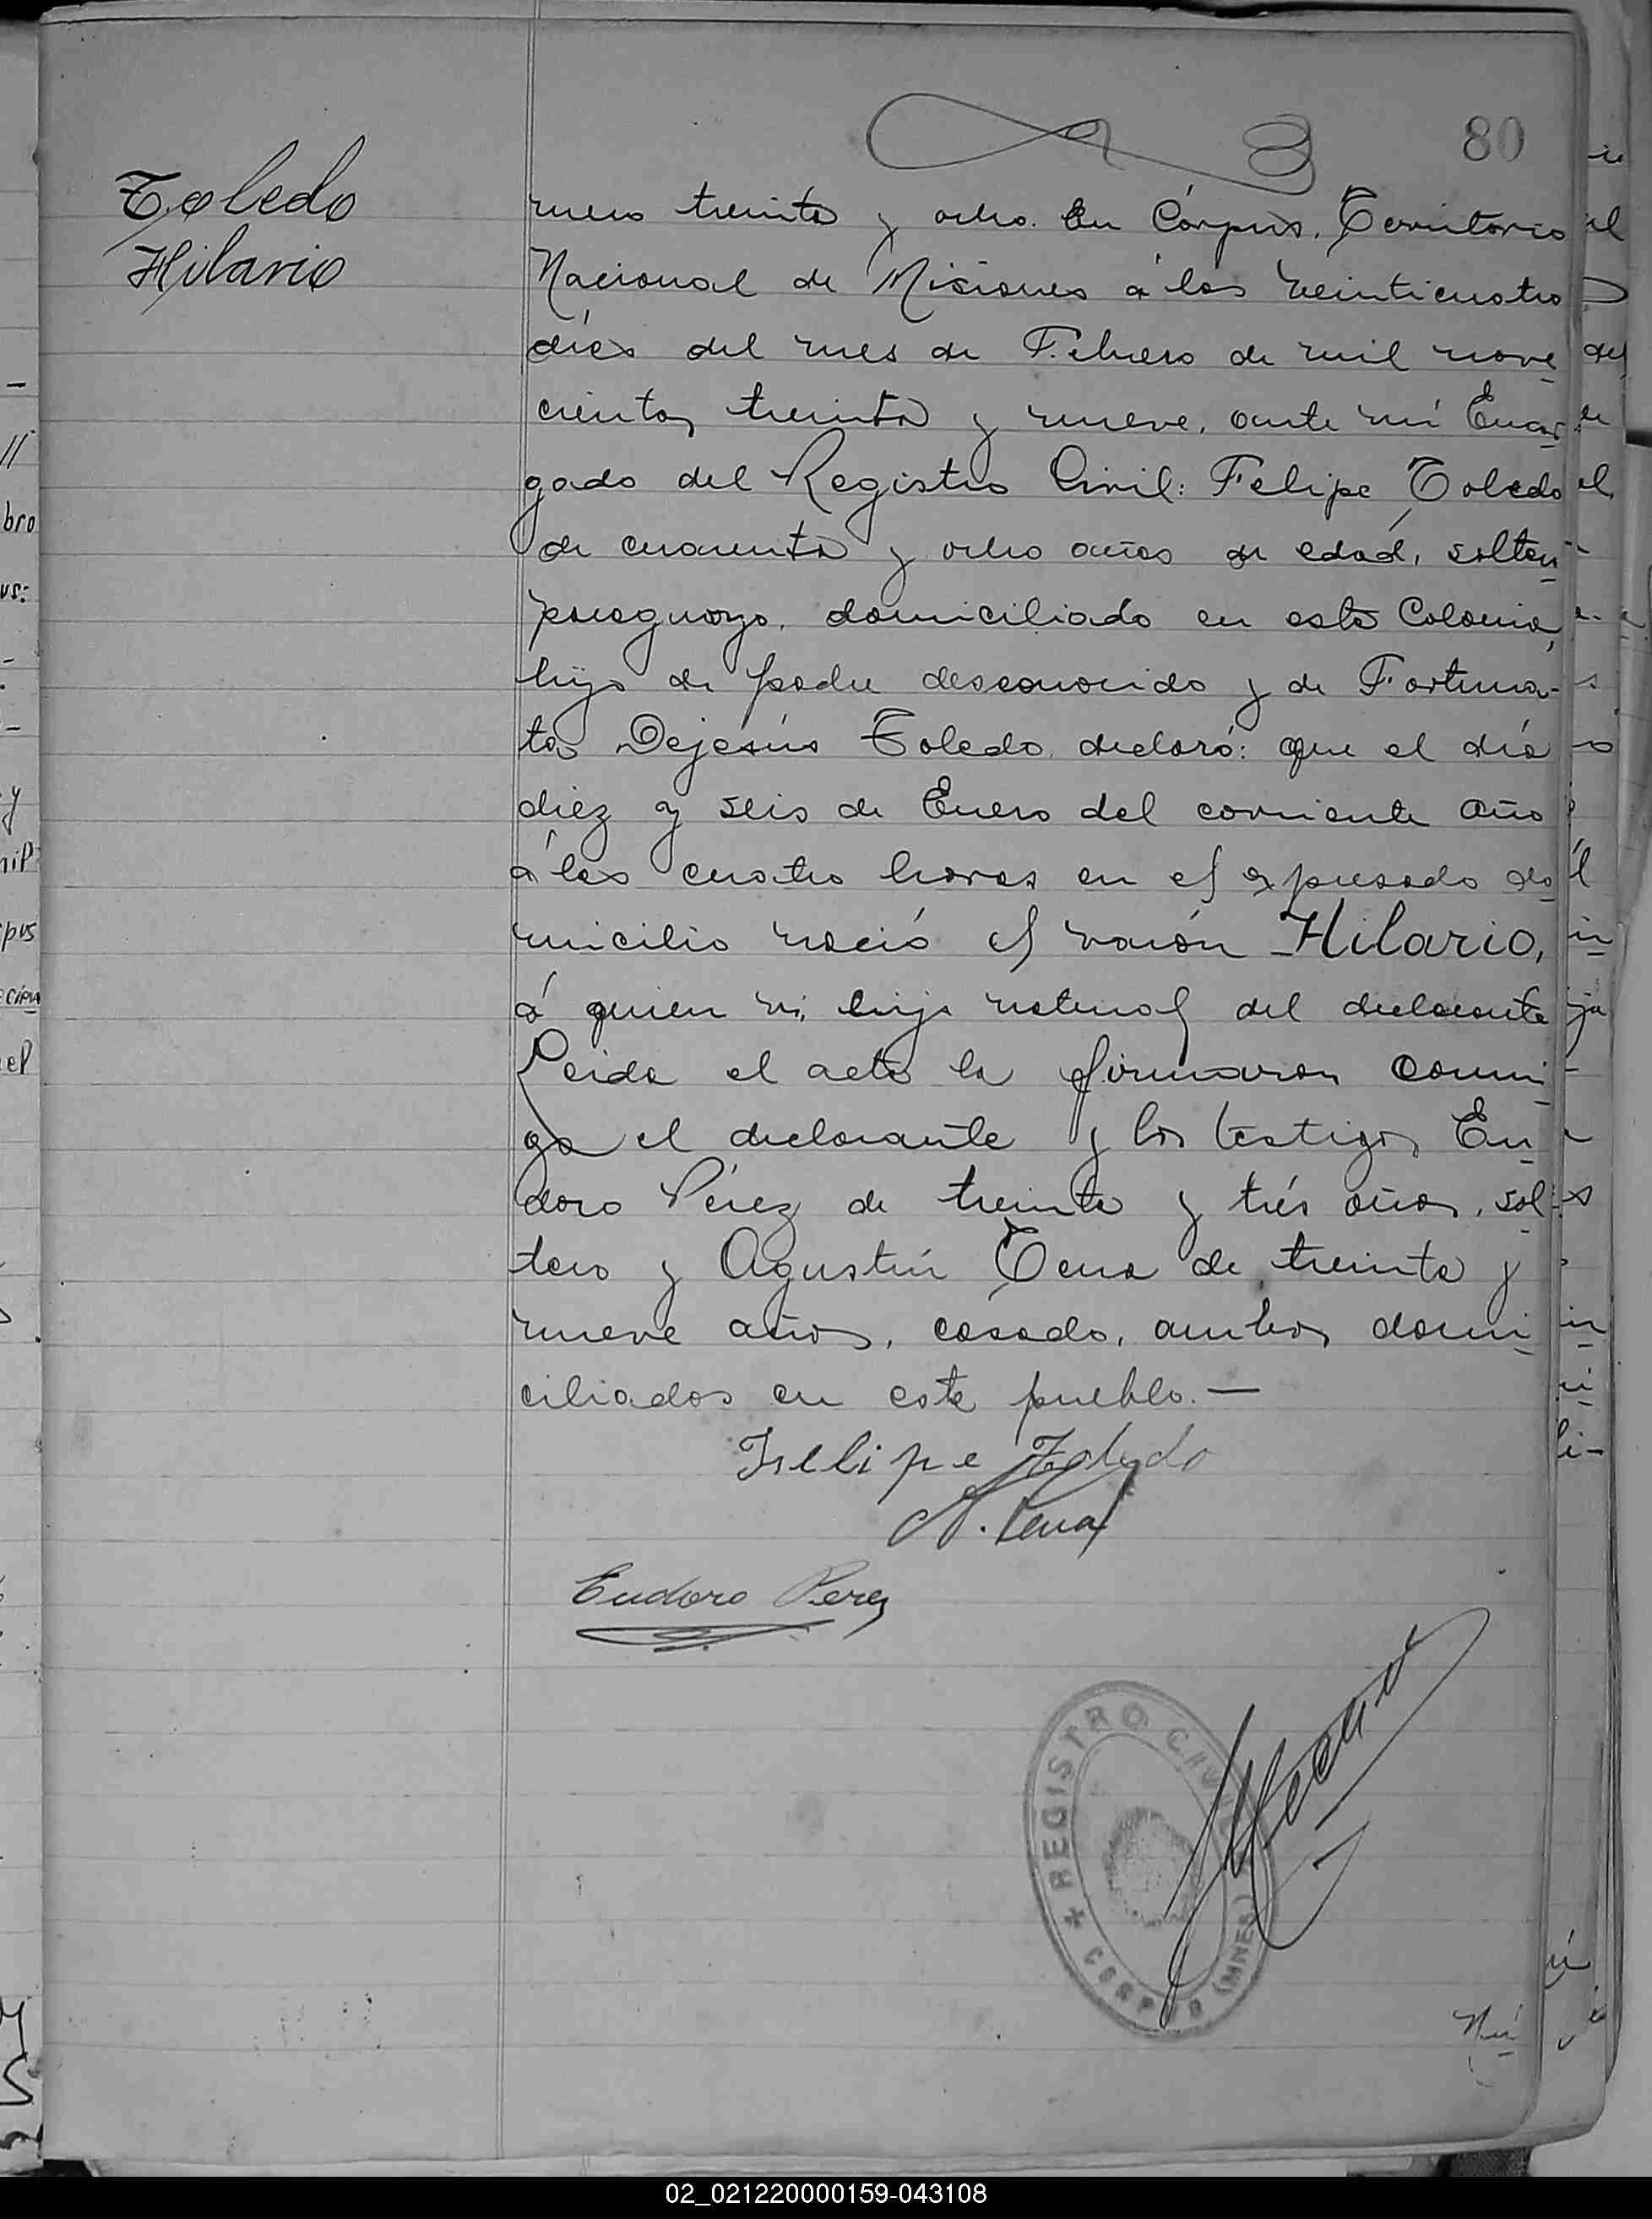 80
Toledo
Hilario
mero treinta y ocho. En Córpus, Territorio
Nacional de Misiones á los veinticuatro
días del mes de Febrero de mil nove
cientos treinta y nueve, ante mí Encar
gado del Registro Civil: Felipe Toledo
de cuarenta y ocho años de edad, soltero
paraguayo, domiciliado en esta Colonia,
hijo de padre desconocido y de Fortuna-
ta Dejesús Toledo, declaró: que el día
diez y seis de Enero del corriente año
á las cuatro horas en el expresado do
micilio nació el varón Hilario,
á quien vi, hijo natural del declarante
Leida el acta la firmaron conmi
go el declarante y los testigos Eu
doro Pérez de treinta y trés años, sol
tero y Agustín Tena de treinta y
nueve años, casado, ambos domi
ciliados en este pueblo.—
Felipe Toledo
A. Tena
Eudoro Perez
REGISTRO CIVIL
CORPUS (MNES)
Nú
02_021220000159-043108